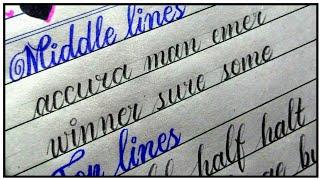 Middle lines
accura man emer
winner sure some
Top lines
half halt